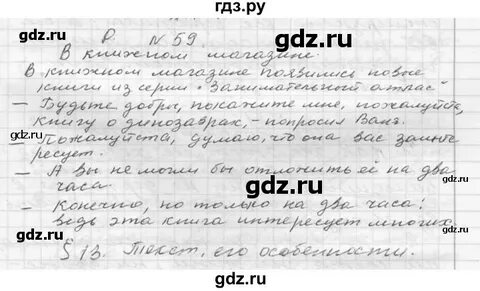 гдз.ру
Р. № 59
В книжном магазине.
В книжном магазине появились новые
книги из серии "Занимательный атлас"
– Будьте добры, покажите мне, пожалуйста,
книгу о динозаврах, – попросил Валя.
– Пожалуйста, думаю, что она вас заинте
ресует.
– А Вы не могли бы отложить её на два
часа.
– Конечно, но только на два часа!
ведь эта книга интересует многих.
§ 13. Текст, его особенности.
gdz.ru
gdz.ru
gdz.ru
gdz.ru
gdz.ru
gdz.ru
gdz.ru
gdz.ru
gdz.ru
gdz.ru